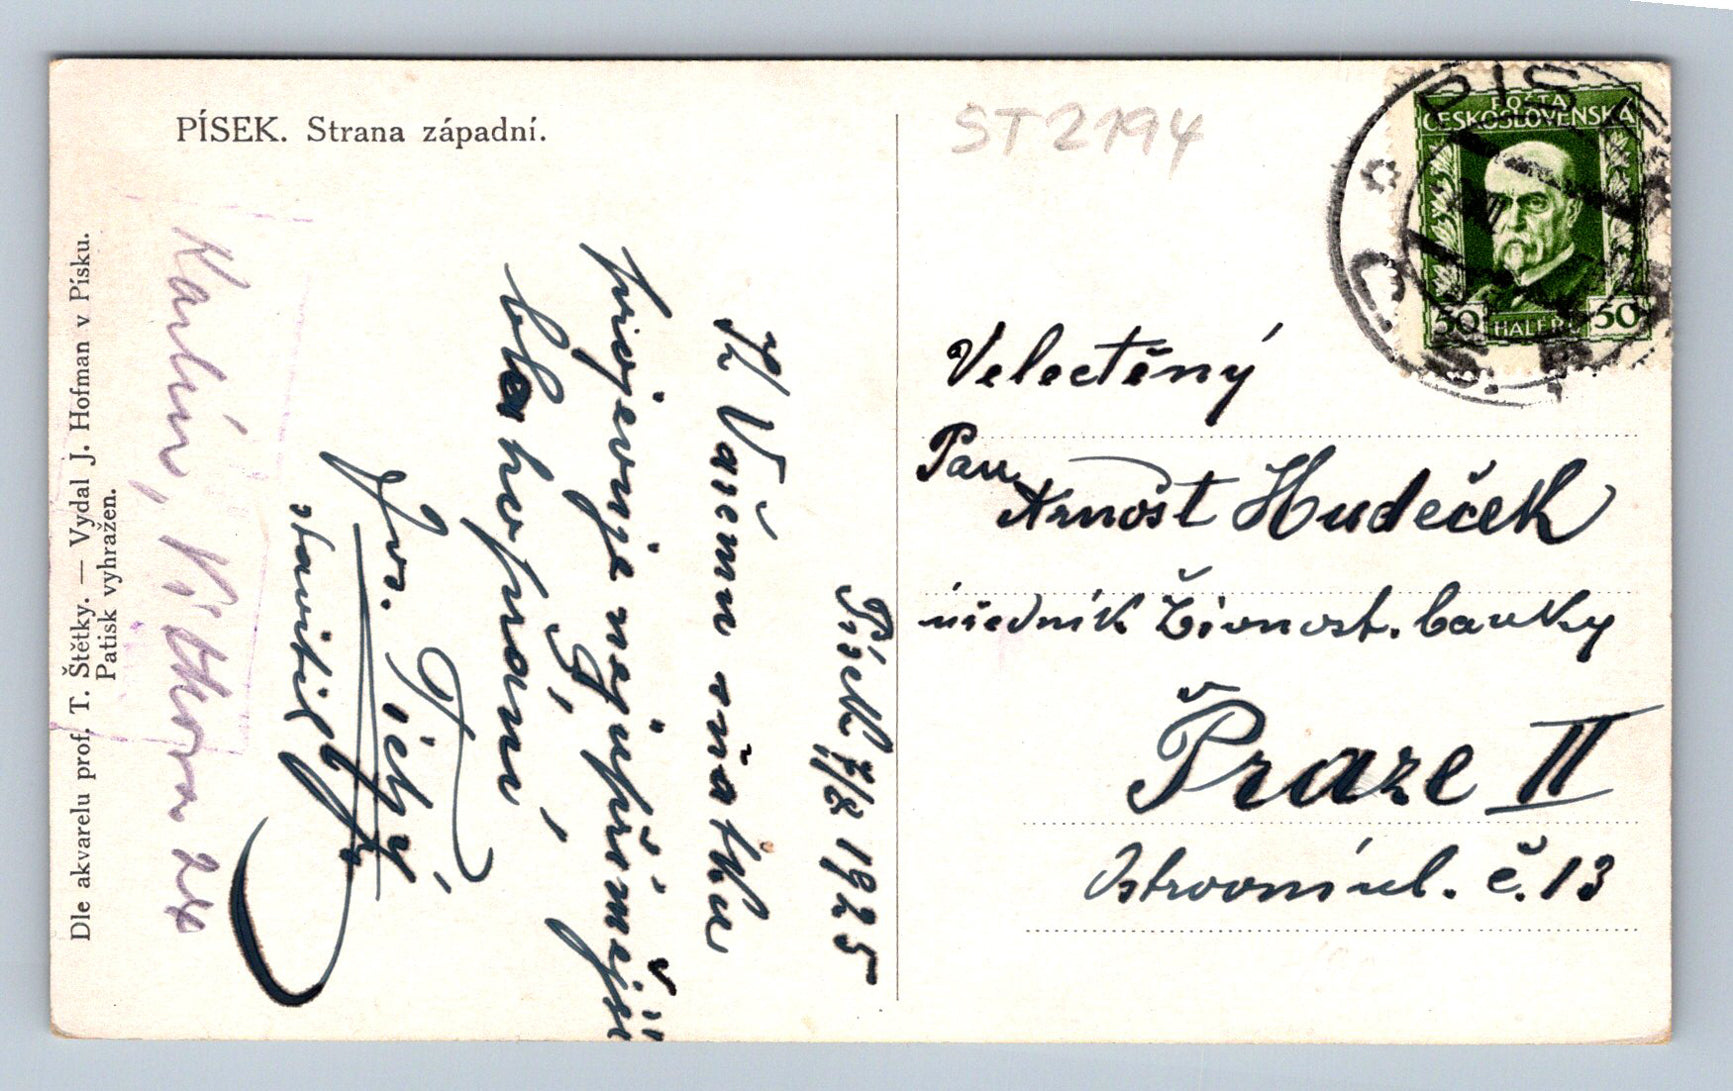 PÍSEK. Strana západní.
Dle akvarelu prof. T. Štětky. — Vydal J. Hofman v Písku.
Patisk vyhražen.
Karlín, Vítkova 24
Písek 7/8 1925
K Vašemu sňatku
projevuje nejupřímější
blahopřání,
Jos. Tichý
stavitel
ST2194
POŠTA
ČESKOSLOVENSKÁ
50 HALÉŘŮ 50
PÍSEK
Velectěný
Pan
Arnošt Hudeček
úředník Živnost. banky
Praze II
Ostrovní ul. č. 13